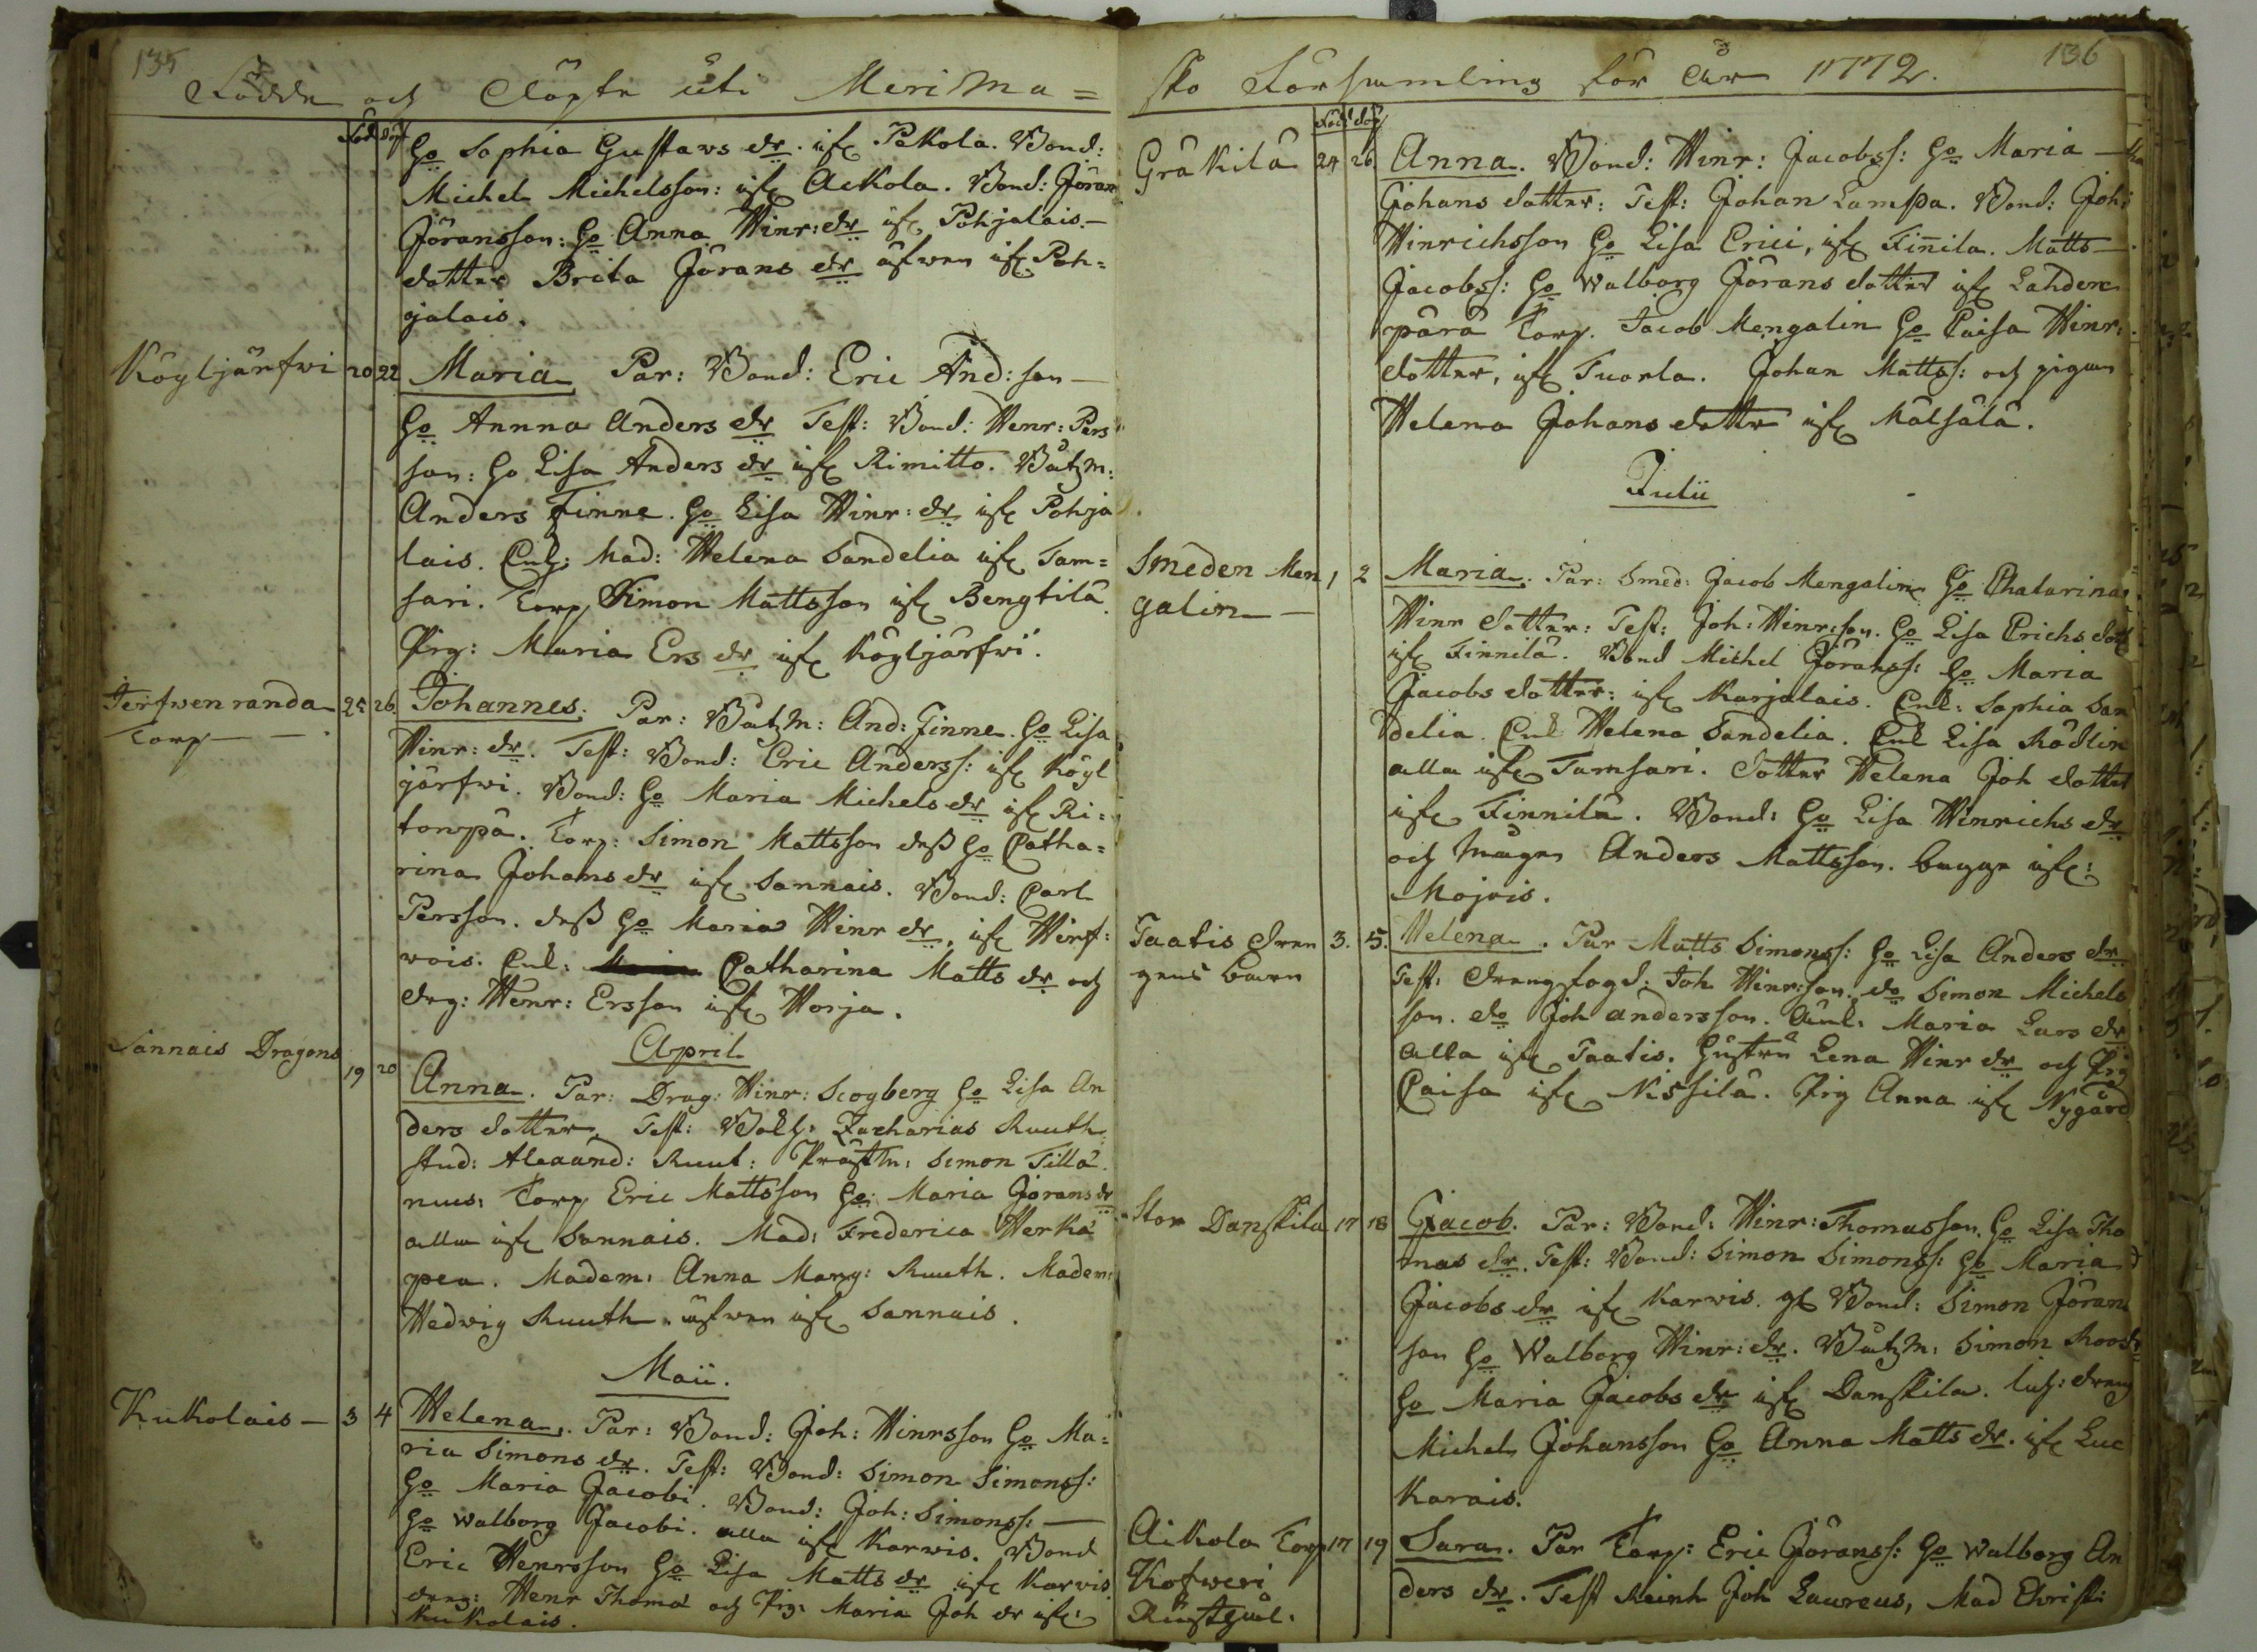 135
Födde och Döpte uti Merima=
Föd döpt
Ho Sophia Gustavs dr. ifr Pekola. Bond:
Michel Michelsson: ifr Ackola. Bond: Jöran
Jöransson: Ho Anna Hinr: dr ifr Pohjalais.
dotter Brita Jörans dr äfwen ifr Poh=
jalais.
Kögljärfwi 20 22 Maria Par: Bond: Eric And: son
Ho Annna Anders dr Test: Bond: Henr: Pers
son: Ho Lisa Anders dr ifr Rimitto. Båtzm:
Anders Finne. Ho Lisa Hinr: dr ifr Pohja
lais. Mad: Helena Sandelia ifr Tam=
sari. Torp Simon Mattsson ifr Bengtilä
Pig: Maria Ers dr ifr Kögljärfwi.
Jerfwenranda 25 26 Johannes. Par: Båtzm: And: Finne. Ho Lisa
Torp
Hinr: dr. Test: Bond: Eric Anderss: ifr Kögl
järfwi. Bond: Ho Maria Michels dr ifr Ri=
tonpä. Torp: Simon Mattsson dess Ho Catha=
rina Johans dr ifr Sannais. Bond: Carl
Persson. dess Ho Maria Hinr dr, ifr Hirf=
wois. Catharina Matts dr och
drg: Henr: Ersson ifr Horja.
April
Sannais Dragons 19 20 Anna. Par: Drag: Hinr: Scogberg Ho Lisa An
ders dotter. Test: Zacharias Ruuth
stud: Ruut: Simon Tillä
nus: Torp Eric Mattsson Ho: Maria Jörans dr
alla ifr Sannais. Mad: Frederica Herka
pea. Madem: Anna Marg: Ruuth. Madem:
Hedwig Ruuth. äfwen ifr Sannais.
Maii.
Kukolais 3 4 Helena. Par: Bond: Joh: Hinrsson Ho Ma=
ria Simons dr. Test: Bond: Simon Simonss:
Ho Maria Jacobi. Bond: Joh: Simonss:
Ho Walborg Jacobi. alla ifr Karwis. Bond
Eric Henrsson Ho Lisa Matts dr ifr Karvis
dreng: Henr Thomæ och Pig: Maria Joh dr ifr:
Kukolais.
136
sko Församling för år 1772.
Född döp
Gräkilä 24 26. Anna. Bond: Hinr: Jacobss: Ho Maria
Johans dotter: Test: Johan Lampa. Bond: Joh:
Hinrichsson Ho Lisa Erici, ifr Finnila. Matts
Jacobss: Ho Walborg Jörans dotter ifr Lahden
pärä Torp. Jacob Mengalin Ho Caisa Hinr:
dotter, ifr Tuorla. Johan Mattss: och pigan
Helena Johans dotter ifr Mälsälä.
Julii
Smeden Men 1 2 Maria. Par: Smed: Jacob Mengalin Ho Chatarina
galin
Hinr dotter: Test: Joh: Hinr:son. Ho Lisa Erichs dott
ifr Finnilä. Bond Michel Jöranss: Ho Maria
Jacobs dotter: ifr Karjalais. Sophia San
delia. Helena Sandelia. Lisa Rödlin
alla ifr Tamsari. dotter Helena Joh dotter
ifr Finnilä. Bond: Ho Lisa Hinrichs dr
och mågen Anders Mattsson. bagge ifr:
Mojois.
Taatis dren 3. 5. Helena. Par Matts Simonss: Ho Lisa Anders dr
gens barn
Test: drengfogd: Joh Hinr:son. do Simon Michels
son. do Joh andersson. Maria Lars dr
alla ifr Taatis. Hustru Lena Hinr dr och Pig
Caisa ifr Nissilä. Pig Anna ifr Nygård
Stor Danskila 17 18 Jacob. Par: Bond: Hinr: Thomasson. Ho Lisa Tho
mas dr. Test: Bond: Simon Simonss: Ho Maria
Jacobs dr ifr Karwis. gl Bond: Simon Jöran
son Ho Walborg Hinr: dr. Båtzm: Simon
Ho Maria Jacobs dr ifr Danskila. dreng
Michel Johansson Ho Anna Matts dr. ifr Luc
karais.
Aikola Torp 17 19 Sara. Par Torp: Eric Jöranss: Ho Walborg An
Kofweri
ders dr. Test Reinh Joh Laureus, Mad Christ: